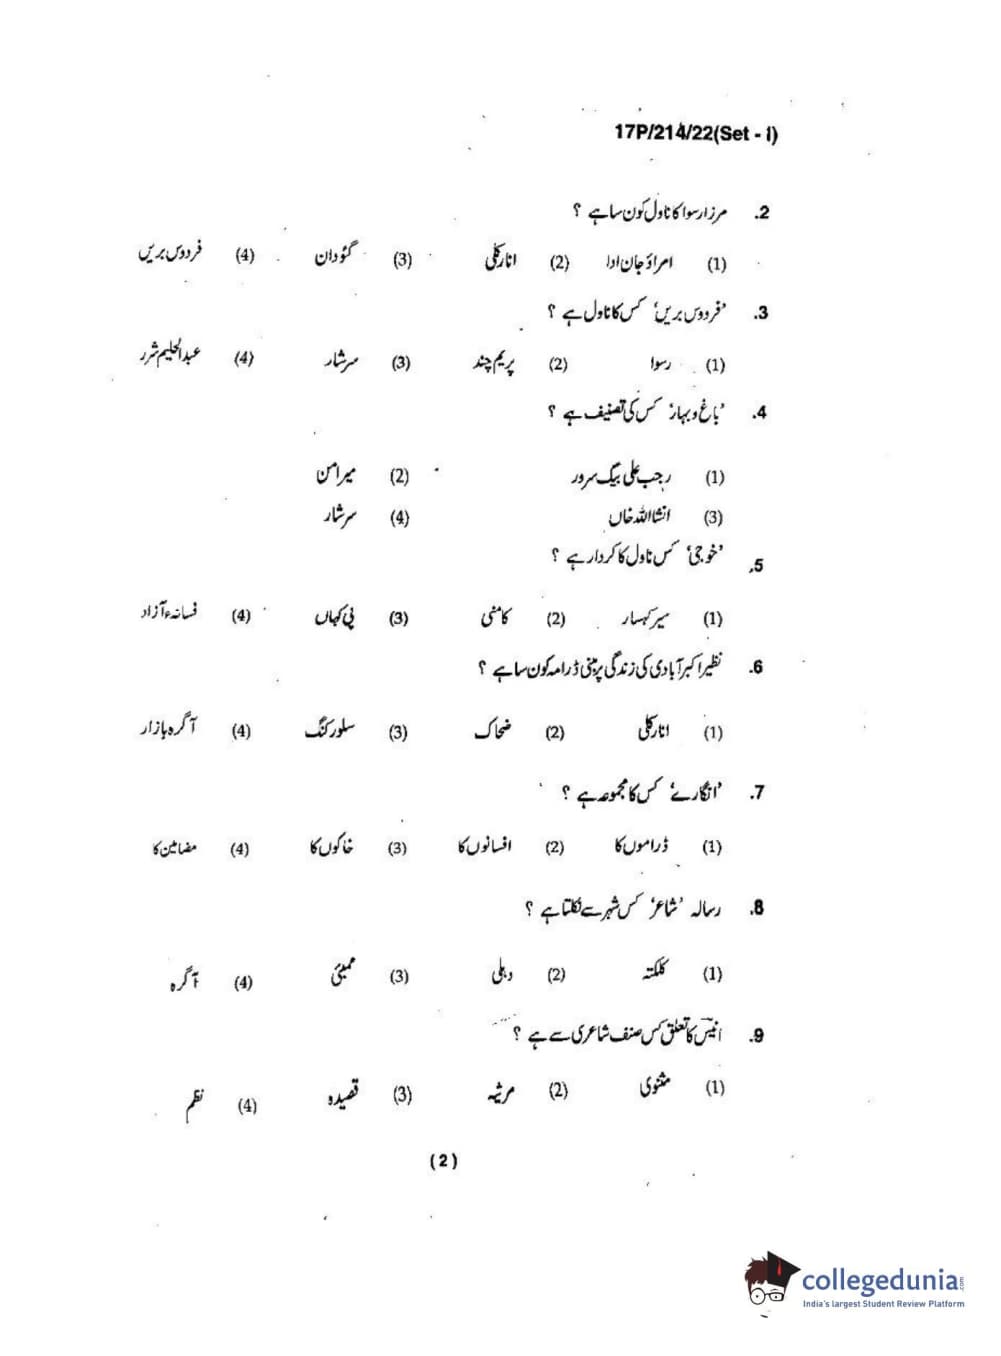 17P/214/22(Set - I)
2. مرزا رسوا کا ناول کون سا ہے ؟
(1) امراؤ جان ادا (2) انار کلی (3) گئودان (4) فردوس بریں
3. 'فردوس بریں' کس کا ناول ہے ؟
(1) رسوا (2) پریم چند (3) سرشار (4) عبدالحلیم شرر
4. 'باغ و بہار' کس کی تصنیف ہے ؟
(1) رجب علی بیگ سرور (2) میر امن
(3) انشا اللہ خاں (4) سرشار
5. 'خوجی' کس ناول کا کردار ہے ؟
(1) سیر کہسار (2) کامنی (3) پی کہاں (4) فسانۂ آزاد
6. نظیر اکبر آبادی کی زندگی پر مبنی ڈرامہ کون سا ہے ؟
(1) انار کلی (2) ضحاک (3) سلور کنگ (4) آگرہ بازار
7. 'انگارے' کس کا مجموعہ ہے ؟
(1) ڈراموں کا (2) افسانوں کا (3) خاکوں کا (4) مضامین کا
8. رسالہ 'شاعر' کس شہر سے نکلتا ہے ؟
(1) کلکتہ (2) دہلی (3) ممبئی (4) آگرہ
9. انیس کا تعلق کس صنف شاعری سے ہے ؟
(1) مثنوی (2) مرثیہ (3) قصیدہ (4) نظم
(2)
collegedunia.com
India's largest Student Review Platform